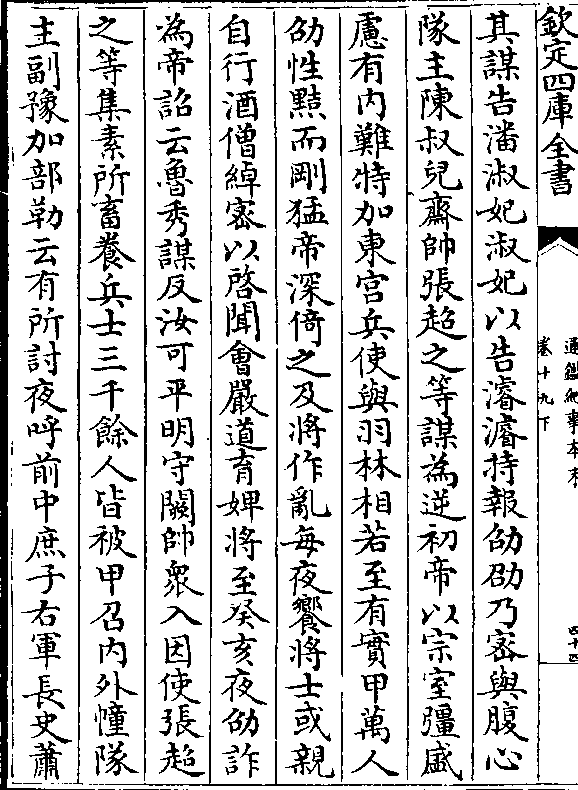 欽定四庫全書
通鑑紀事本末
卷十九下
四十四
其謀告潘淑妃淑妃以告濬濬持報劭劭乃密與腹心
隊主陳叔兒齋帥張超之等謀為逆初帝以宗室彊盛
慮有内難特加東宮兵使與羽林相若至有實甲萬人
劭性黠而剛猛帝深倚之及將作亂每夜饗將士或親
自行酒僧綽宻以啓聞會嚴道育婢將至癸亥夜劭詐
為帝詔云魯秀謀反汝可平明守闕帥衆入因使張超
之等集素所畜養兵士三千餘人皆被甲召内外幢隊
主副豫加部勒云有所討夜呼前中庶子右軍長史蕭